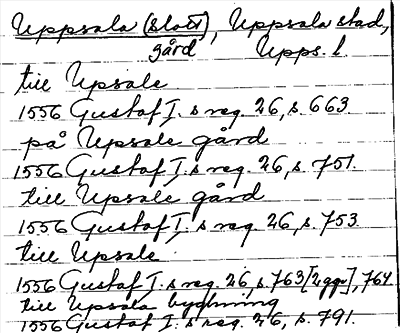 Uppsala (slott), Uppsala stad,
gård Upps. l.
till Upsale
1556 Gustaf I. s reg. 26, s. 663
på Upsale gård
1556 Gustaf I. s reg. 26, s. 751.
till Upsale gård
1556 Gustaf I. s reg. 26, s. 753
till Upsale
1556 Gustaf I. s reg. 26, s. 763 [2 ggr], 764.
till Upsala bygning
1556 Gustaf I. s reg. 26, s. 791.